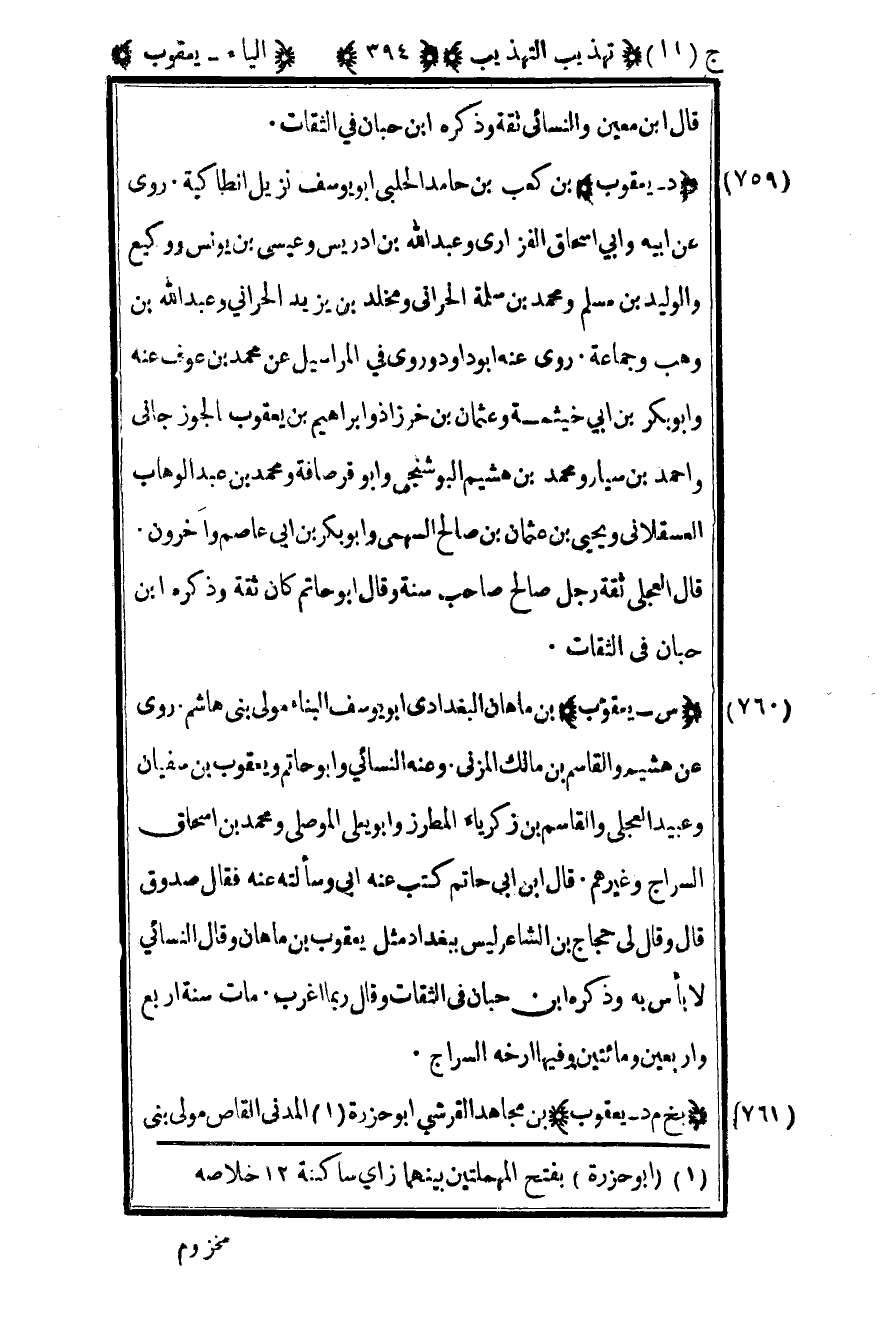 ج (١١) ﴿ تهذيب التهذيب ﴾ ﴿ ٣٩٤ ﴾ ﴿ الياء - يعقوب ﴾
قال ابن معين والنسائى ثقة وذكره ابن حبان في الثقات ٠
(٧٥٩) ﴿ د - يعقوب ﴾ بن كعب بن حامد الحلبي ابو يوسف نزيل انطاكية ٠ روى
عن ابيه وابي اسحاق الفزارى وعبد الله بن ادريس وعيسى بن يونس ووكيع
والوليد بن مسلم ومحمد بن سلمة الحرانى ومخلد بن يزيد الحراني وعبد الله بن
وهب وجماعة ٠ روى عنه ابو داود وروى في المراسيل عن محمد بن عوف عنه
وابوبكر بن ابي خيثمة وعثمان بن خرزاذ وابراهيم بن يعقوب الجوزجانى
واحمد بن سيار ومحمد بن هشيم البوشنجى وابو قرصافة ومحمد بن عبد الوهاب
العسقلانى ويحيى بن عثمان بن صالح السهمى وابوبكر بن ابي عاصم وآخرون ٠
قال العجلى ثقة رجل صالح صاحب سنة وقال ابو حاتم كان ثقة وذكره ابن
حبان فى الثقات ٠
(٧٦٠) ﴿ س - يعقوب ﴾ بن ماهان البغدادى ابو يوسف البناء مولى بنى هاشم ٠ روى
عن هشيم والقاسم بن مالك المزنى ٠ وعنه النسائي وابو حاتم ويعقوب بن سفيان
وعبيد العجلى والقاسم بن زكرياء المطرز وابو يعلى الموصلى ومحمد بن اسحاق
السراج وغيرهم ٠ قال ابن ابى حاتم كتب عنه ابى وسألته عنه فقال صدوق
قال وقال لى حجاج بن الشاعر ليس ببغداد مثل يعقوب بن ماهان وقال النسائي
لا بأس به وذكره ابن حبان فى الثقات وقال ربما اغرب ٠ مات سنة اربع
واربعين ومائتين وفيها ارخه السراج ٠
(٧٦١) ﴿ بخ م د - يعقوب ﴾ بن مجاهد القرشي ابو حزرة (١) المدنى القاص مولى بنى
(١) (ابو حزرة) بفتح المهملتين بينهما زاي ساكنة ١٢ خلاصه
مخزوم